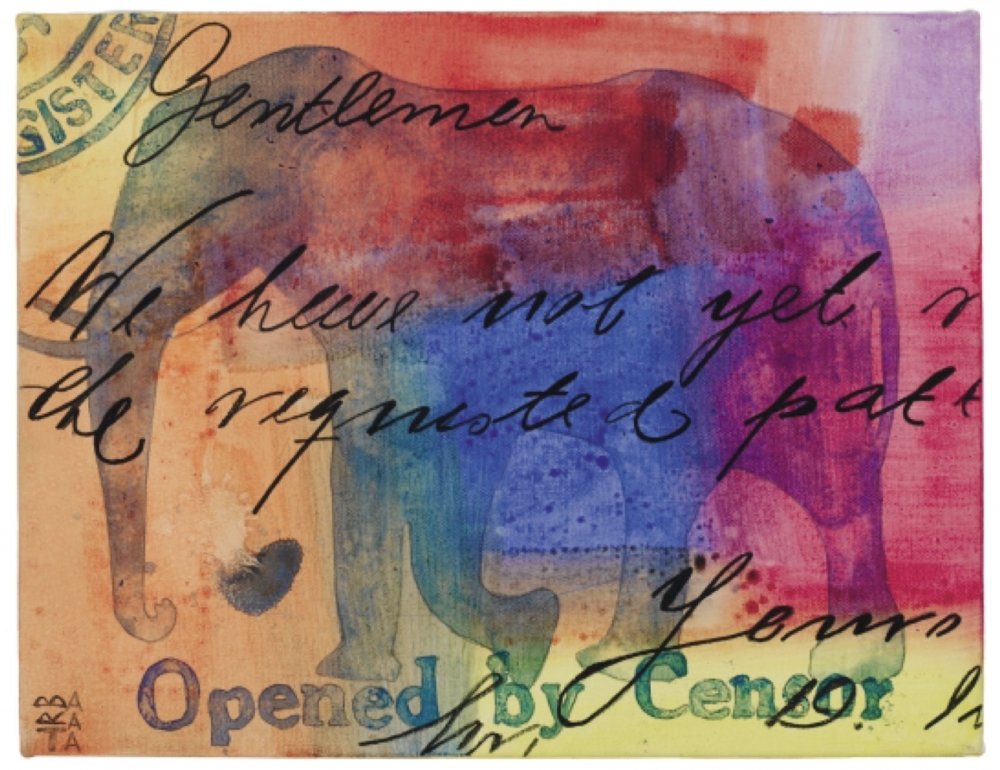 GISTER
Gentlemen
We have not yet
the requested
Yours
Opened by Censor
D.